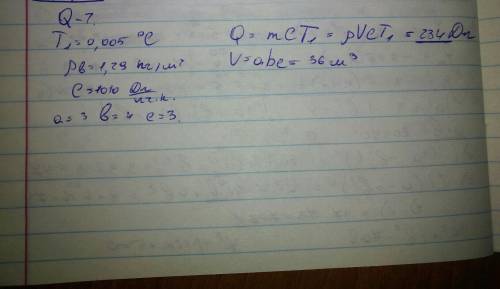 Q-?
T₁=0,005 °C
ρв=1,29 кг/м³
C=1010 Дж/кг.к.
a=3 b=4 c=3.
Q = mCT₁ = ρVcT₁ = 234Дж
V=abc= 36 м³